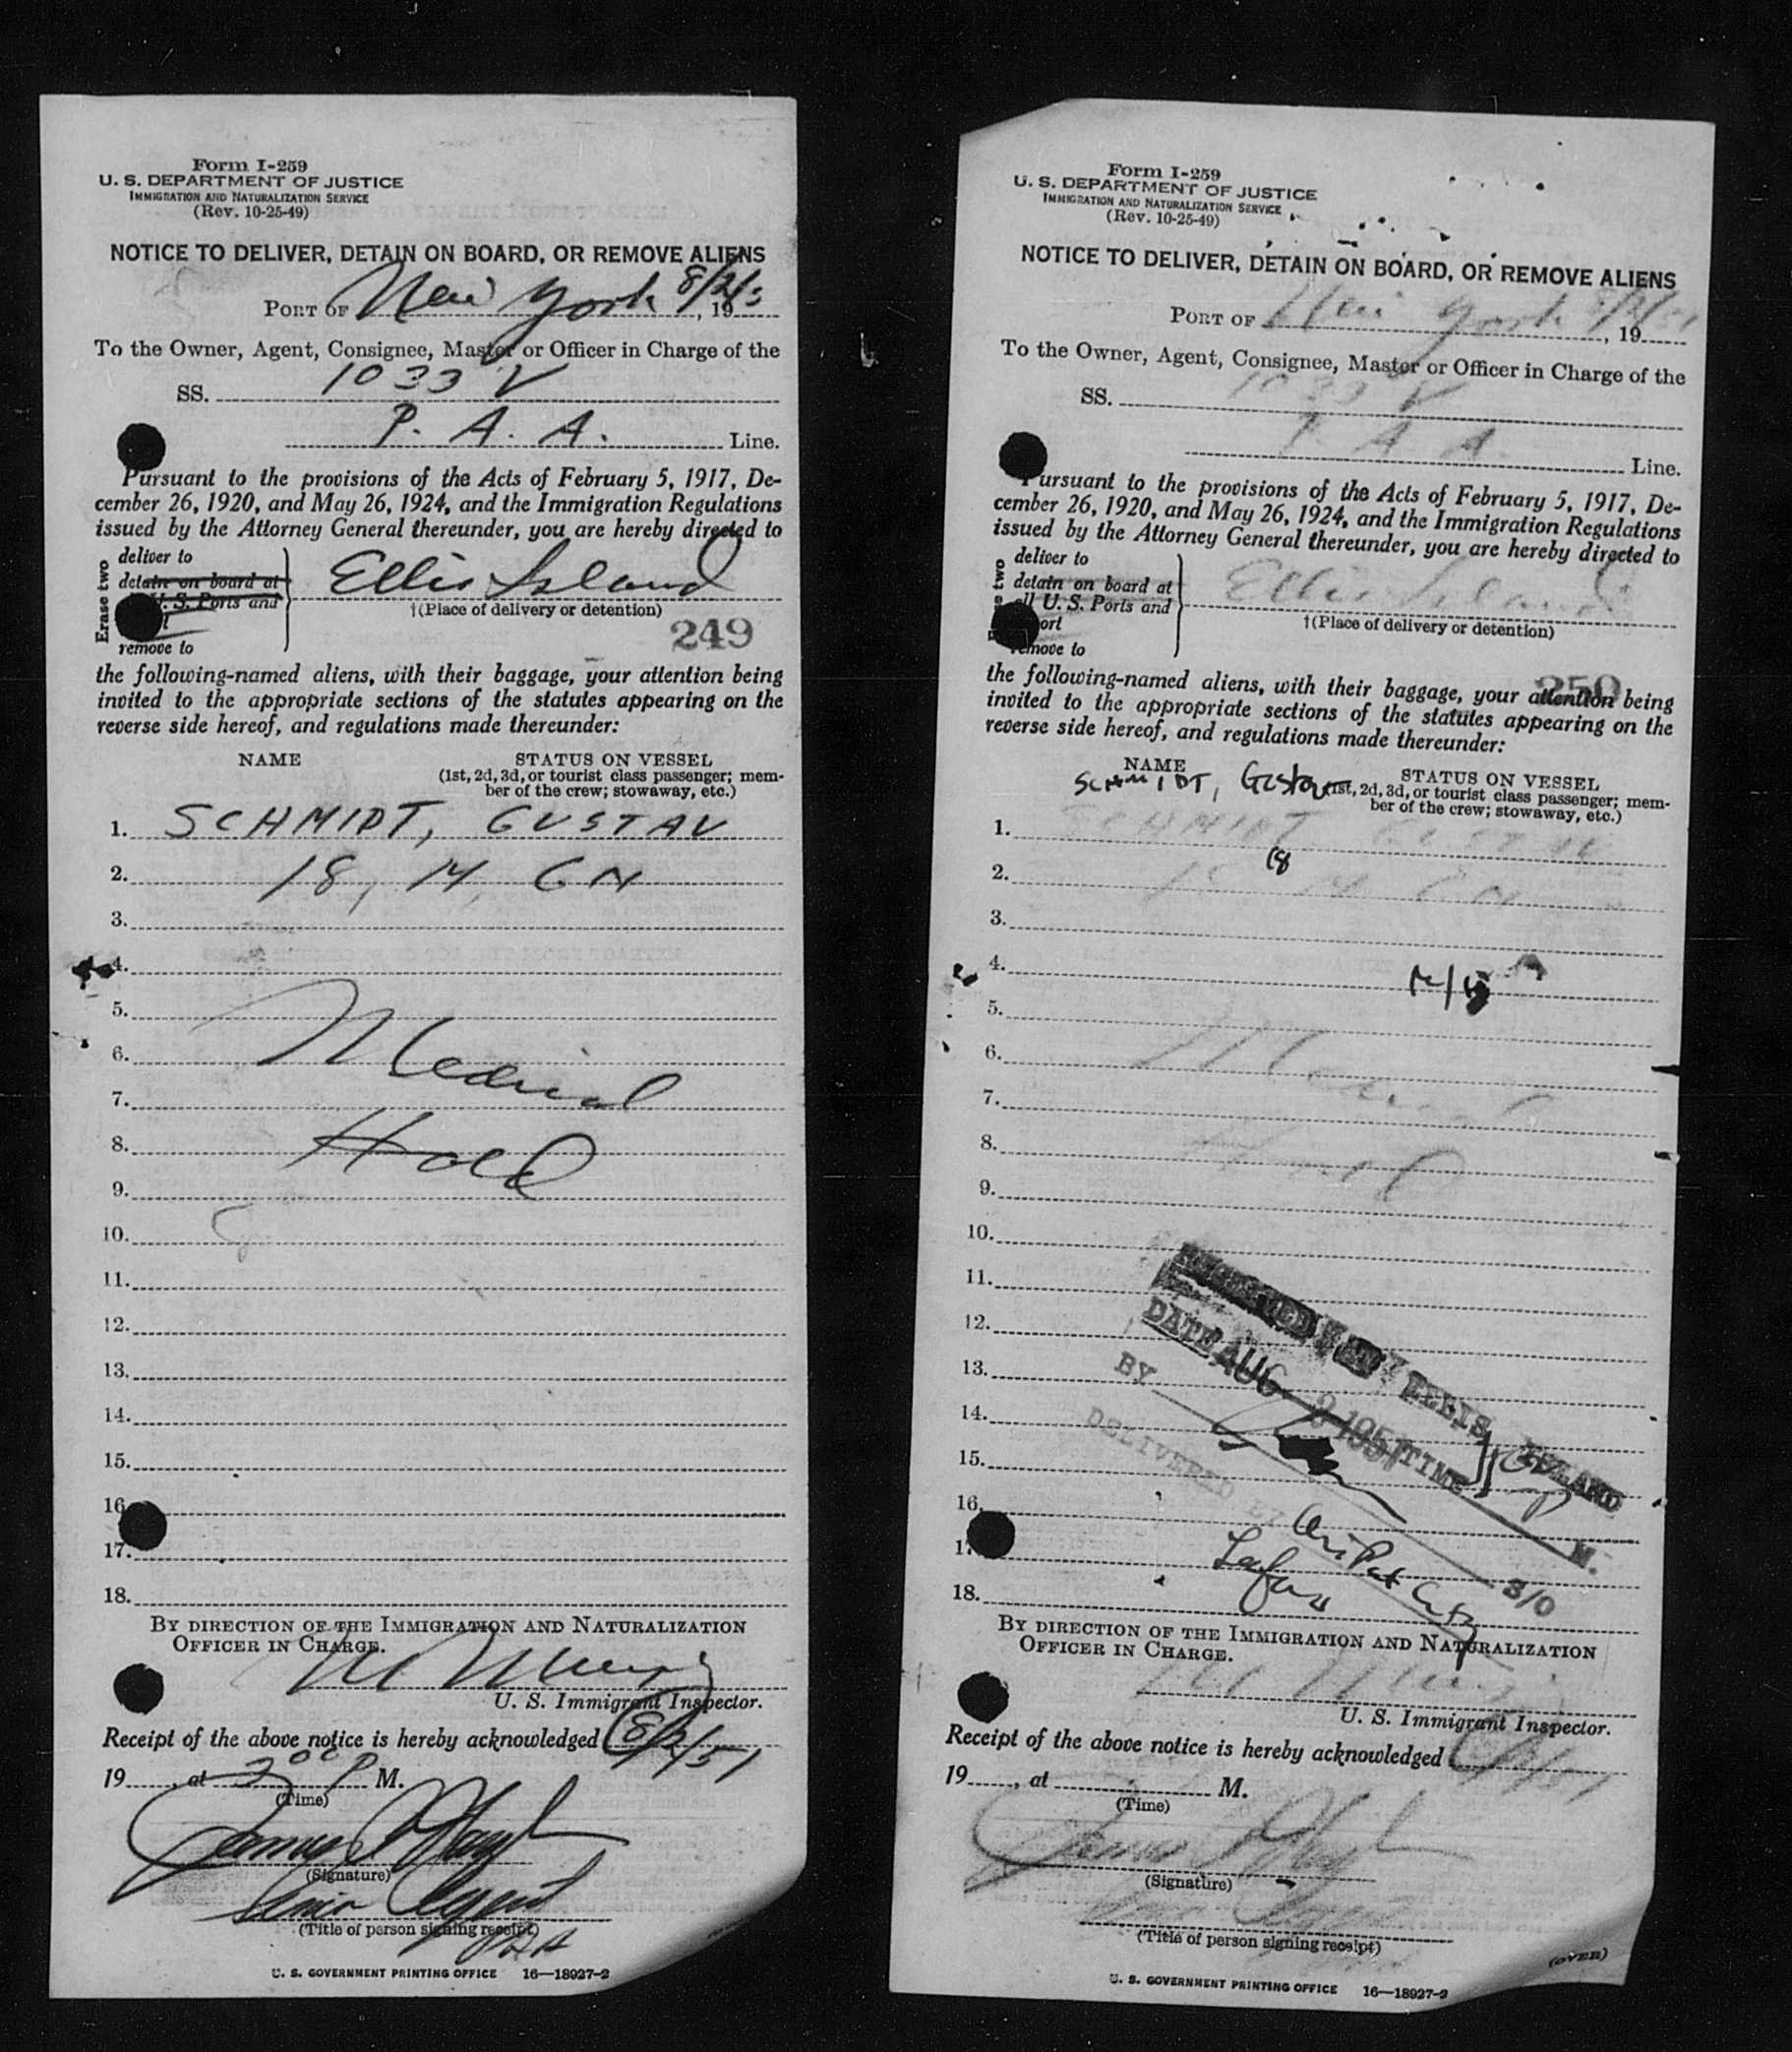 Form I-259
U. S. DEPARTMENT OF JUSTICE
IMMIGRATION AND NATURALIZATION SERVICE
(Rev. 10-25-49)
NOTICE TO DELIVER, DETAIN ON BOARD, OR REMOVE ALIENS
PORT OF New York 8/2/5, 19
To the Owner, Agent, Consignee, Master or Officer in Charge of the
SS. 1033 V
P. A. A. Line.
Pursuant to the provisions of the Acts of February 5, 1917, De-
cember 26, 1920, and May 26, 1924, and the Immigration Regulations
issued by the Attorney General thereunder, you are hereby directed to
Erase two
deliver to
detain on board at
U. S. Ports and
remove to
Ellis Island
†(Place of delivery or detention)
249
the following-named aliens, with their baggage, your attention being
invited to the appropriate sections of the statutes appearing on the
reverse side hereof, and regulations made thereunder:
NAME STATUS ON VESSEL
(1st, 2d, 3d, or tourist class passenger; mem-
ber of the crew; stowaway, etc.)
1. SCHMIDT, GUSTAV
2. 18, M, GN
3.
4.
5.
6. Medical
7.
8. Hold
9.
10.
11.
12.
13.
14.
15.
16
17.
18.
BY DIRECTION OF THE IMMIGRATION AND NATURALIZATION
OFFICER IN CHARGE.
U. S. Immigrant Inspector.
Receipt of the above notice is hereby acknowledged 8/2/51
19, at 3 00 P M.
(Time)
James
(Signature)
Senior Agent
(Title of person signing receipt)
PAA
U. S. GOVERNMENT PRINTING OFFICE 16—18927-2
Form I-259
U. S. DEPARTMENT OF JUSTICE
IMMIGRATION AND NATURALIZATION SERVICE
(Rev. 10-25-49)
NOTICE TO DELIVER, DETAIN ON BOARD, OR REMOVE ALIENS
PORT OF New York 8/2/51, 19
To the Owner, Agent, Consignee, Master or Officer in Charge of the
SS. 1033 V
P A A Line.
Pursuant to the provisions of the Acts of February 5, 1917, De-
cember 26, 1920, and May 26, 1924, and the Immigration Regulations
issued by the Attorney General thereunder, you are hereby directed to
deliver to
detain on board at
all U. S. Ports and
remove to
Ellis Island
†(Place of delivery or detention)
250
the following-named aliens, with their baggage, your attention being
invited to the appropriate sections of the statutes appearing on the
reverse side hereof, and regulations made thereunder:
NAME STATUS ON VESSEL
SCHMIDT, Gustav
(1st, 2d, 3d, or tourist class passenger; mem-
ber of the crew; stowaway, etc.)
1. SCHMIDT GUSTAV
2. 18 M GN
18
3.
4.
5.
6. Medical
7.
8. Hold
9.
10.
11.
12.
13.
14.
15.
16.
17
18.
RECEIVED AT ELLIS ISLAND
DATE AUG 2 1951 TIME M.
BY S/O
DELIVERED BY
BY DIRECTION OF THE IMMIGRATION AND NATURALIZATION
OFFICER IN CHARGE.
U. S. Immigrant Inspector.
Receipt of the above notice is hereby acknowledged 8/2/51
19, at M.
(Time)
James
(Signature)
Senior Agent
(Title of person signing receipt)
(OVER)
U. S. GOVERNMENT PRINTING OFFICE 16—18927-2